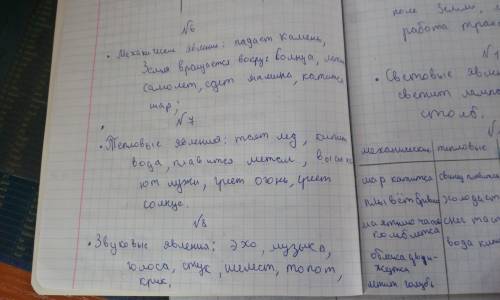 N6
• Механические явления: падает камень,
Земля вращается вокруг солнца, летит
самолет, едет машина, катится
шар;
N7
• Тепловые явления: тает лед, кипит
вода, плавится металл, высыха-
ют лужи, греет огонь, греет
солнце.
N8
• Звуковые явления: эхо, музыка,
голоса, стук, шелест, топот,
крик.
поле Земли,
работа
• Световые явле
светит лампо
столб.
механические тепловые
шар катится свинец плавится
плывёт бревно холодает
маятник часов снег тает
колеблется вода кипит
облака дви-
жутся
летит голубь